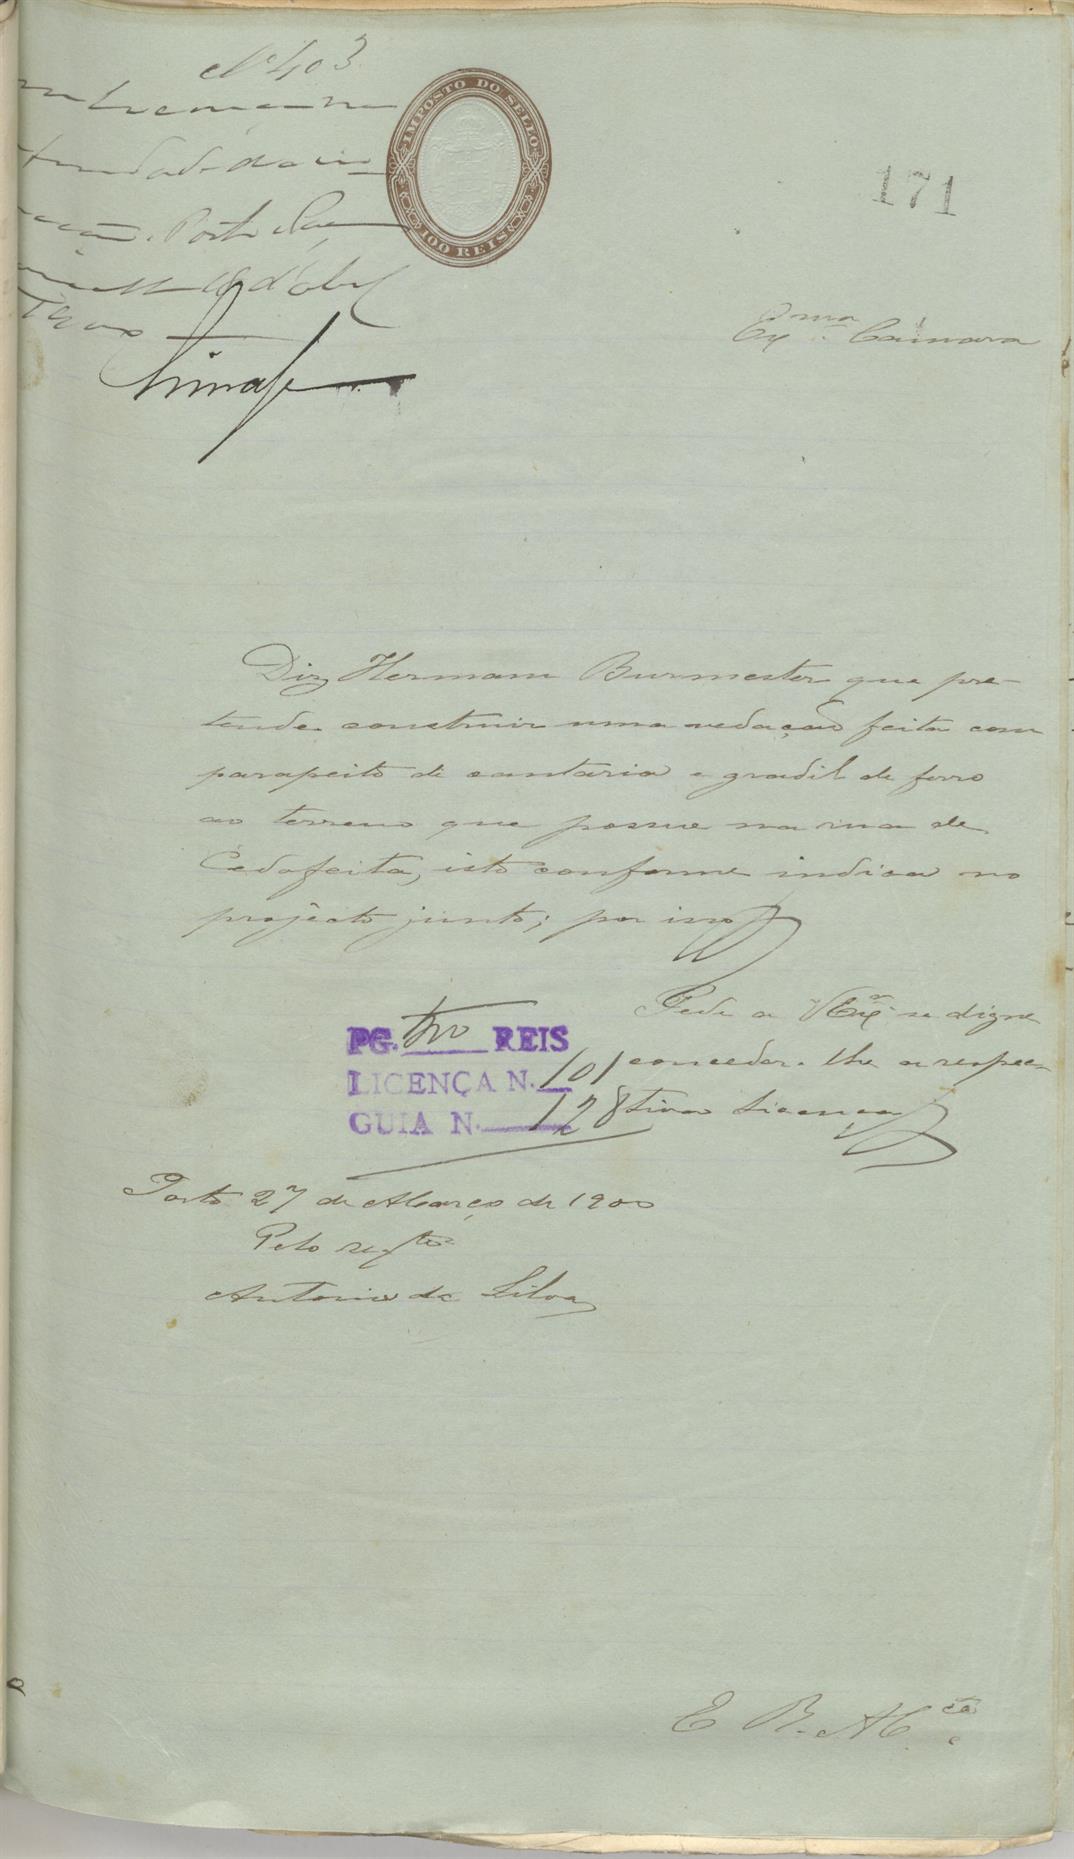 Nº 403
IMPOSTO DO SELLO
100 REIS
171
Porto
d'Abril
1900
Exma. Camara
Diz Hermann Burmester que pre-
tende construir uma vedação feita com
parapeito de cantaria e gradil de ferro
ao terreno que possue na rua de
Cedofeita, isto conforme indica no
projècto junto; por isso
Pede a V Exª se digne
conceder-lhe a respec-
tiva licença
PG. REIS
LICENÇA N. 101
GUIA N. 128
Porto 27 de Março de 1900
Pelo reqte
Antonio da Silva
E. R. Mcê